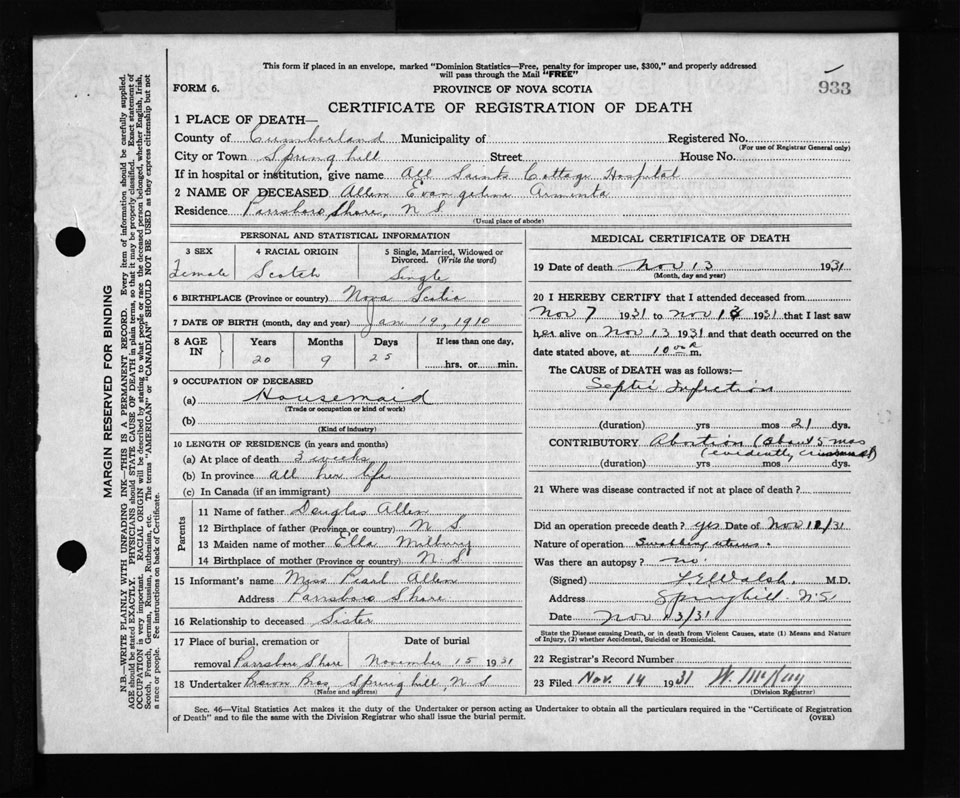 This form if placed in an envelope, marked "Dominion Statistics—Free, penalty for improper use, $300," and properly addressed
will pass through the Mail "FREE"
FORM 6. PROVINCE OF NOVA SCOTIA 933
CERTIFICATE OF REGISTRATION OF DEATH
1 PLACE OF DEATH—
County of Cumberland Municipality of Registered No.
(For use of Registrar General only)
City or Town Spring hill Street House No.
If in hospital or institution, give name All Saints Cottage Hospital
2 NAME OF DECEASED Allen Evangeline Armenta
Residence Parrsboro Shore, N S
(Usual place of abode)
PERSONAL AND STATISTICAL INFORMATION
3 SEX 4 RACIAL ORIGIN 5 Single, Married, Widowed or
Divorced. (Write the word)
Female Scotch Single
6 BIRTHPLACE (Province or country) Nova Scotia
7 DATE OF BIRTH (month, day and year) Jan 19, 1910
8 AGE IN Years Months Days If less than one day,
20 9 25 hrs. or min.
9 OCCUPATION OF DECEASED
(a) Housemaid
(Trade or occupation or kind of work)
(b)
(Kind of industry)
10 LENGTH OF RESIDENCE (in years and months)
(a) At place of death 3 weeks
(b) In province All her life
(c) In Canada (if an immigrant)
Parents
11 Name of father Douglas Allen
12 Birthplace of father (Province or country) N S
13 Maiden name of mother Ella Milbury
14 Birthplace of mother (Province or country) N S
15 Informant's name Miss Pearl Allen
Address Parrsboro Shore
16 Relationship to deceased Sister
17 Place of burial, cremation or Date of burial
removal Parrsboro Shore November 15 1931
18 Undertaker Brown Bros Springhill, N S
(Name and address)
MEDICAL CERTIFICATE OF DEATH
19 Date of death Nov 13 1931
(Month, day and year)
20 I HEREBY CERTIFY that I attended deceased from
Nov 7 1931 to Nov 13 1931 that I last saw
her alive on Nov 13 1931 and that death occurred on the
date stated above, at 10 m.
The CAUSE of DEATH was as follows:—
Septic Infection
(duration) yrs mos 21 dys.
CONTRIBUTORY Abortion (about 5 mos
(evidently criminal)
(duration) yrs mos dys.
21 Where was disease contracted if not at place of death?
Did an operation precede death? yes Date of Nov 12/31
Nature of operation Swabbing uterus.
Was there an autopsy? no.
(Signed) Walsh. M.D.
Address Springhill. N.S
Date Nov 13/31
State the Disease causing Death, or in death from Violent Causes, state (1) Means and Nature
of Injury, (2) whether Accidental, Suicidal or Homicidal.
22 Registrar's Record Number
23 Filed Nov. 14 1931 W. McKay
(Division Registrar)
Sec. 46—Vital Statistics Act makes it the duty of the Undertaker or person acting as Undertaker to obtain all the particulars required in the "Certificate of Registration
of Death" and to file the same with the Division Registrar who shall issue the burial permit. (OVER)
MARGIN RESERVED FOR BINDING
N.B.—WRITE PLAINLY WITH UNFADING INK—THIS IS A PERMANENT RECORD. Every item of information should be carefully supplied.
AGE should be stated EXACTLY. PHYSICIANS should STATE CAUSE OF DEATH in plain terms, so that it may be properly classified. Exact statement of
OCCUPATION is very important. RACIAL ORIGIN will be described by stating to what people or race the deceased person belonged, whether English, Irish,
Scotch, French, German, Russian, Ruthenian, etc. The terms "AMERICAN" or "CANADIAN" SHOULD NOT BE USED as they express citizenship but not
a race or people. Fee instructions on back of Certificate.